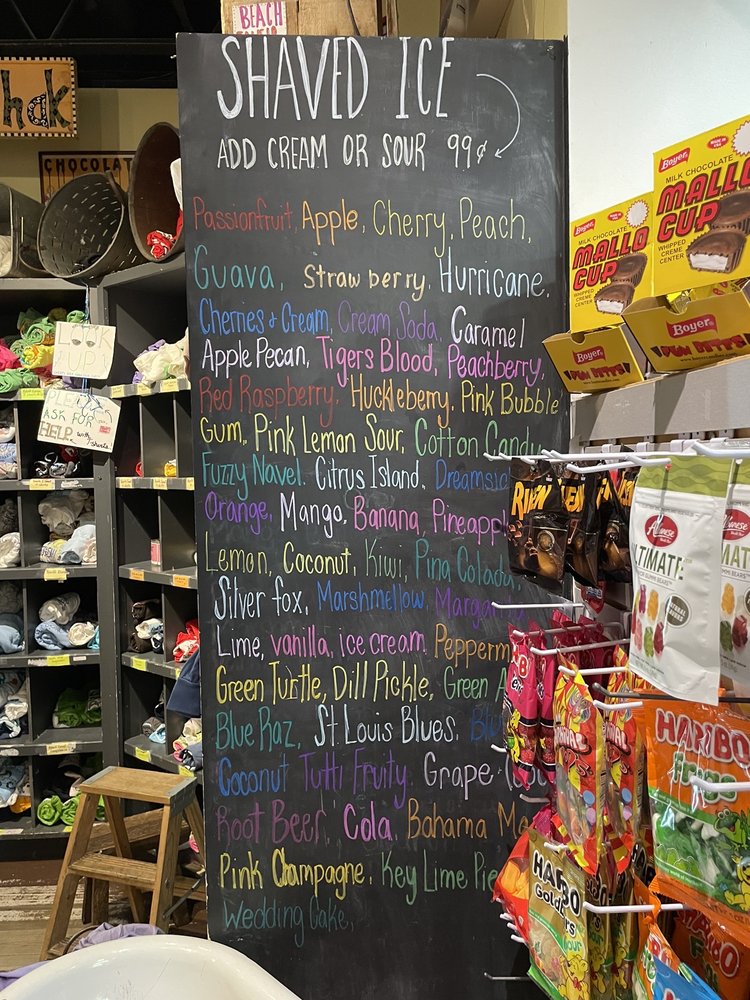 BEACH
hdk
CHOCOLAT
SHAVED ICE
ADD CREAM OR SOUR 99¢
Passionfruit, Apple, Cherry, Peach,
Guava, Strawberry, Hurricane,
Cherries & Cream, Cream Soda, Caramel
Apple Pecan, Tigers Blood, Peachberry,
Red Raspberry, Huckleberry, Pink Bubble
Gum, Pink Lemon Sour, Cotton Candy
Fuzzy Navel, Citrus Island, Dreamsic
Orange, Mango, Banana, Pineappl
Lemon, Coconut, Kiwi, Pina Colada,
Silver fox, Marshmellow, Marga
Lime, vanilla, ice cream, Pepperm
Green Turtle, Dill Pickle, Green A
Blue Raz, St Louis Blues, Blu
Coconut Tutti Fruity, Grape,
Root Beer, Cola, Bahama Ma
Pink Champagne, Key Lime Pie
Wedding Cake,
LOOK
UP
PLEASE
ASK FOR
HELP with
shirts
Boyer
MILK CHOCOLATE
MALLO
CUP
WHIPPED
CREME
CENTER
Boyer
Boyer
MILK CHOCOLATE
MALLO
CUP
WHIPPED
CREME
CENTER
Boyer
LTIMATE
HARIBO
HARIBO
Gold
HARIBO